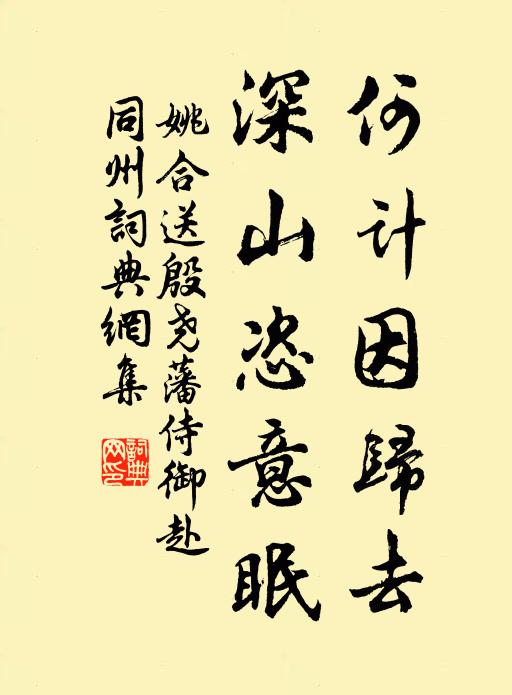 何计因歸去
深山恣意眠
姚合送殷尧藩侍御赴
同州詞典網集
詞典
网印